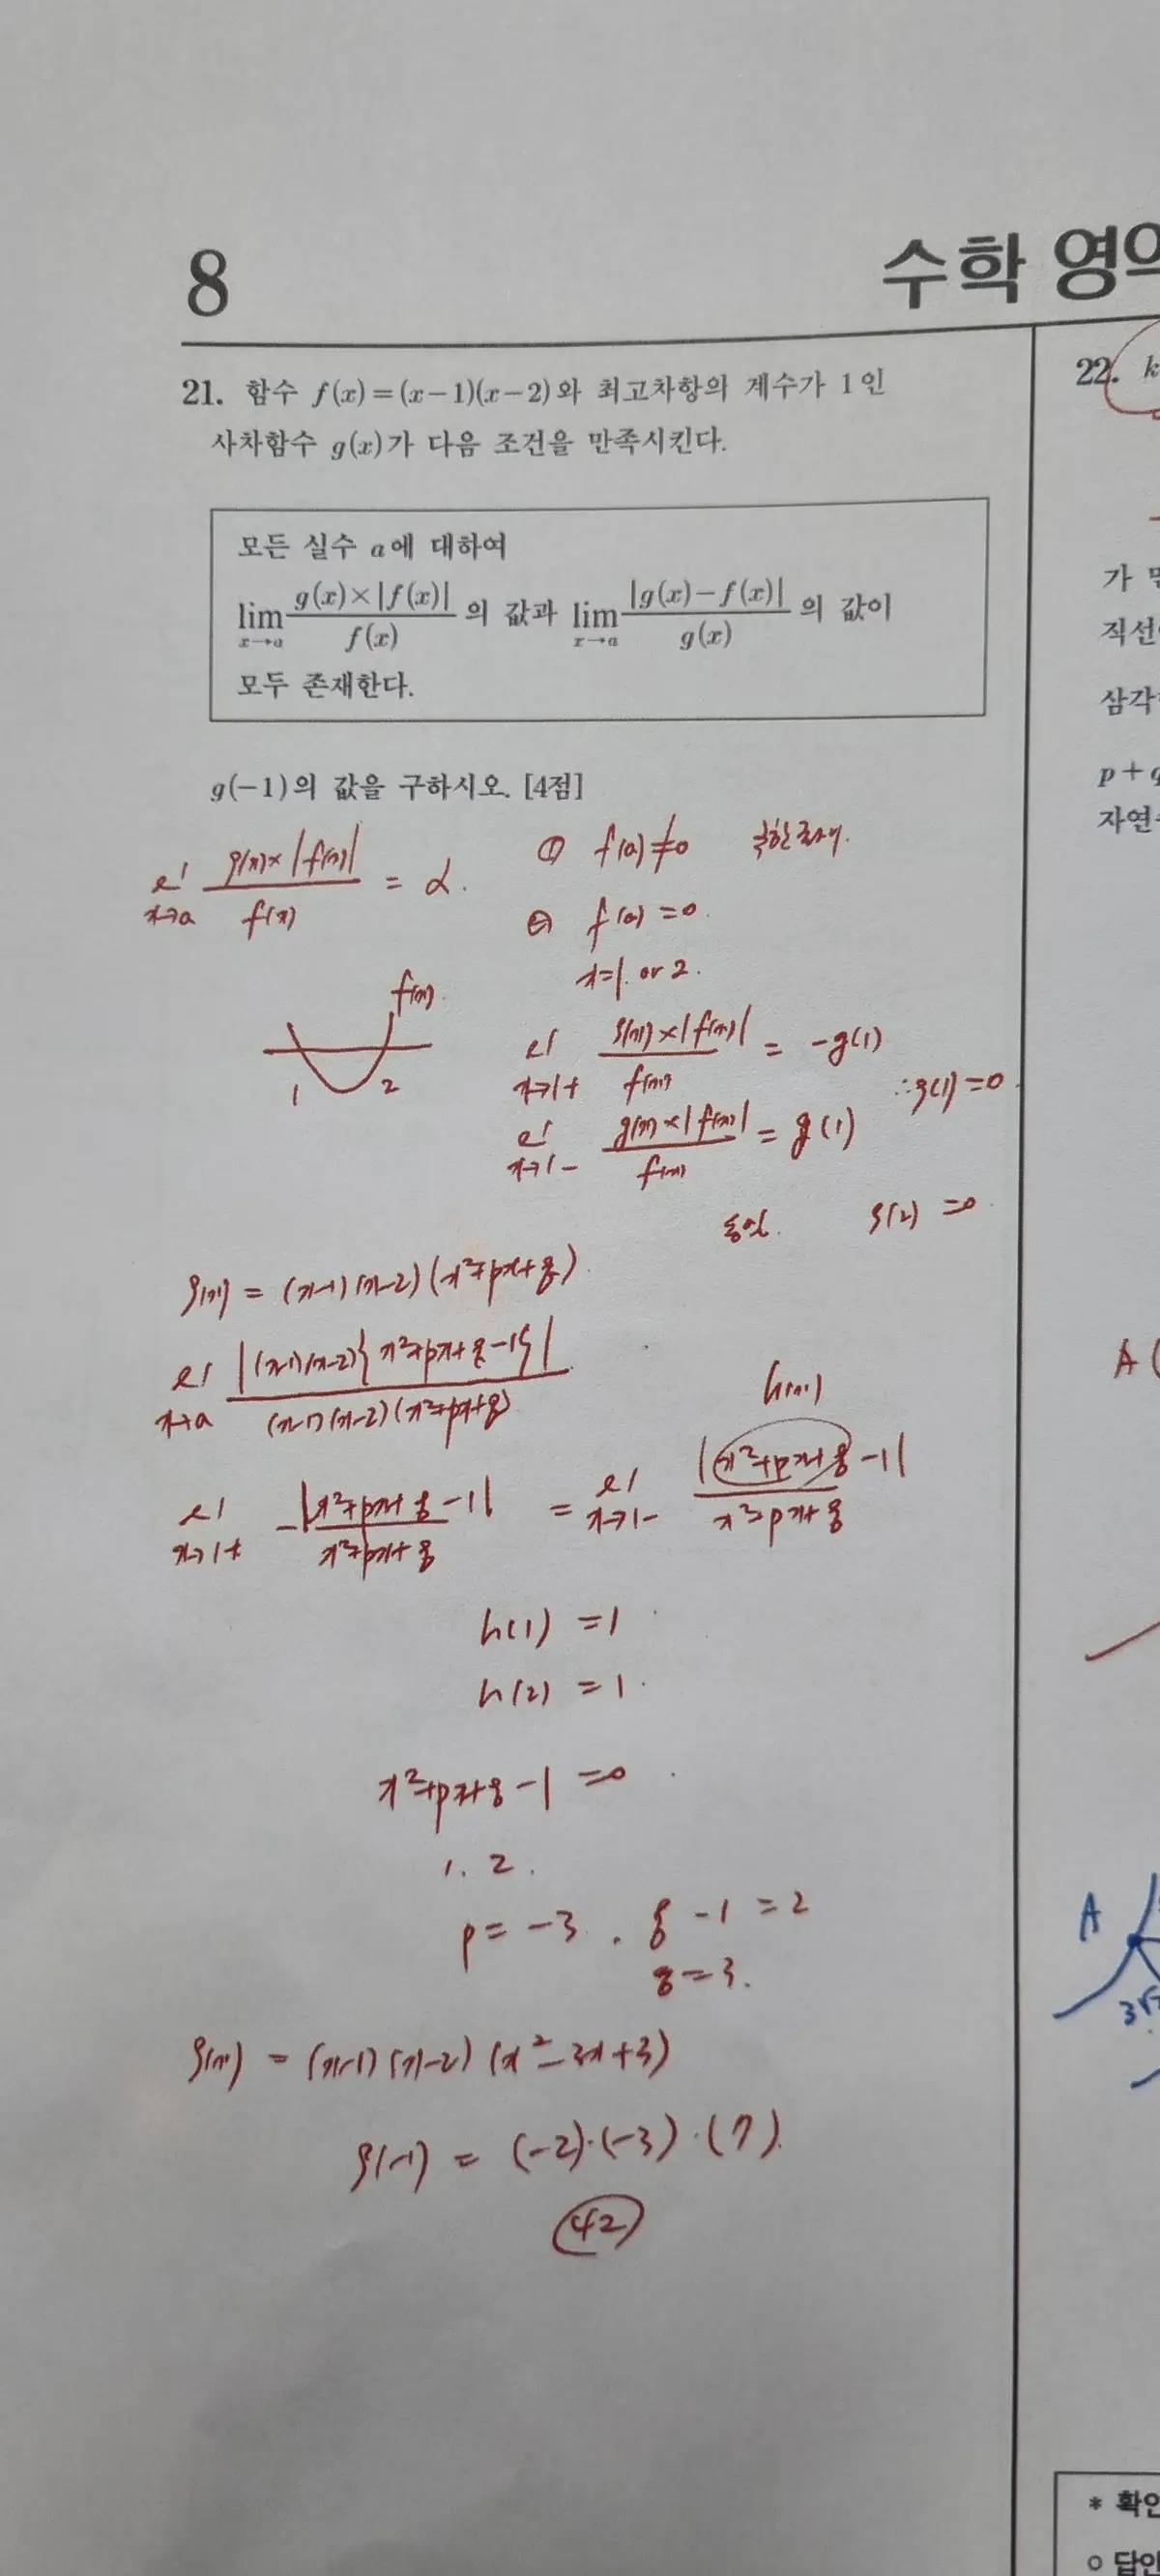 8
수학 영역
21. 함수 f(x)=(x-1)(x-2)와 최고차항의 계수가 1인
사차함수 g(x)가 다음 조건을 만족시킨다.
모든 실수 a에 대하여
lim_{x→a} g(x)×|f(x)| / f(x) 의 값과 lim_{x→a} |g(x)-f(x)| / g(x) 의 값이
모두 존재한다.
g(-1)의 값을 구하시오. [4점]
lim_{x→a} g(x)×|f(x)| / f(x) = α.
① f(a)≠0 극한존재.
② f(a)=0.
x=1. or 2.
f(x)
1 2
lim_{x→1+} g(x)×|f(x)| / f(x) = -g(1)
∴g(1)=0
lim_{x→1-} g(x)×|f(x)| / f(x) = g(1)
동일. g(2)=0
g(x) = (x-1)(x-2)(x²+px+q)
lim_{x→a} |(x-1)(x-2){x²+px+q-1}| / (x-1)(x-2)(x²+px+q)
h(x)
lim_{x→1+} -|x²+px+q-1| / x²+px+q = lim_{x→1-} |x²+px+q-1| / x²+px+q
h(1) =1
h(2) =1.
x²+px+q-1 =0
1. 2.
p=-3. q-1=2
q=3.
g(x) = (x-1)(x-2)(x²-3x+3)
g(-1) = (-2)·(-3)·(7)
42
22. k
가
직선
삼각
p+q
자연
A
A
* 확인
○ 답안